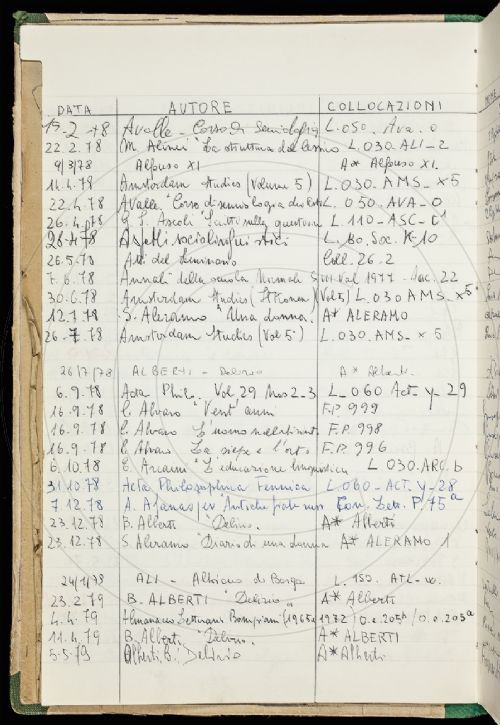 DATA AUTORE COLLOCAZIONI
17-2-78 Avalle - Corso di Semiologia L.050. Ava. 0
22.2.78 M. Alinei "La struttura del lessico L.030-ALI-2
9/3/78 Alfonso XI A* Alfonso XI.
11.4.78 Amsterdam Studies (Volume 5) L.030-AMS- x5
22.4.78 Avalle "Corso di semiologia L.050.AVA-0
26.4.78 G. I. Ascoli "Scritti sulla questione L.110-ASC-
28.4.78 Aspetti sociolinguistici L. Soc. K-10
26.5.78 Atti del Seminario Coll. 26.2
7.6.78 Annali della scuola Normale 1977 22
30.6.78 Amsterdam Studies (Vol 5) L.030 AMS- x5
12.7.78 S. Aleramo "Una donna" A* ALERAMO
26.7.78 Amsterdam Studies (Vol 5) L.030.AMS- x 5
26/7/78 ALBERTI - Delirio A* Alberti
6.9.78 Acta Phil. Vol. 29 Nos 2-3 L-060 Act- y-29
16.9.78 C. Alvaro "Vent'anni F.P. 999
16.9.78 C. Alvaro "L'uomo nel labirinto F.P. 998
16.9.78 C. Alvaro La siepe e l'orto F.P. 996
6.10.78 "L'educazione linguistica L 030.ARC.b
31.10.78 Acta Philosophica Fennica L.060-ACT. y-28
7.12.78 A. Afanasjev Antiche fiabe russe P.75a
23.12.78 B. Alberti "Delirio" A* Alberti
23.12.78 S. Aleramo "Diario di una donna A* ALERAMO 1
24/1/79 ALI - Albiano di Barga L. 150.
23.2.79 B. ALBERTI "Delirio" A* Alberti
4.4.79 Almanacco Letterario Bompiani (1965 1972) O.e.205b/O.e.205a
11.4.79 B. Alberti "Delirio" A* ALBERTI
5-5-79 Alberti B. Delirio A* Alberti